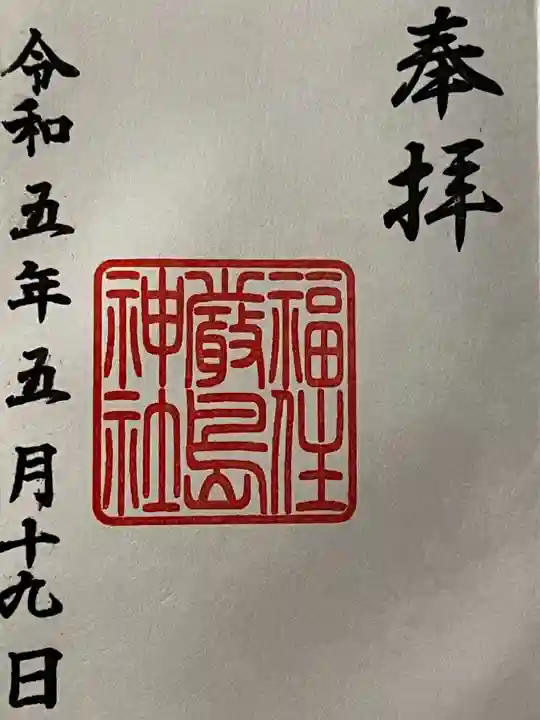 奉拝
福住
厳島
神社
令和五年五月十九日